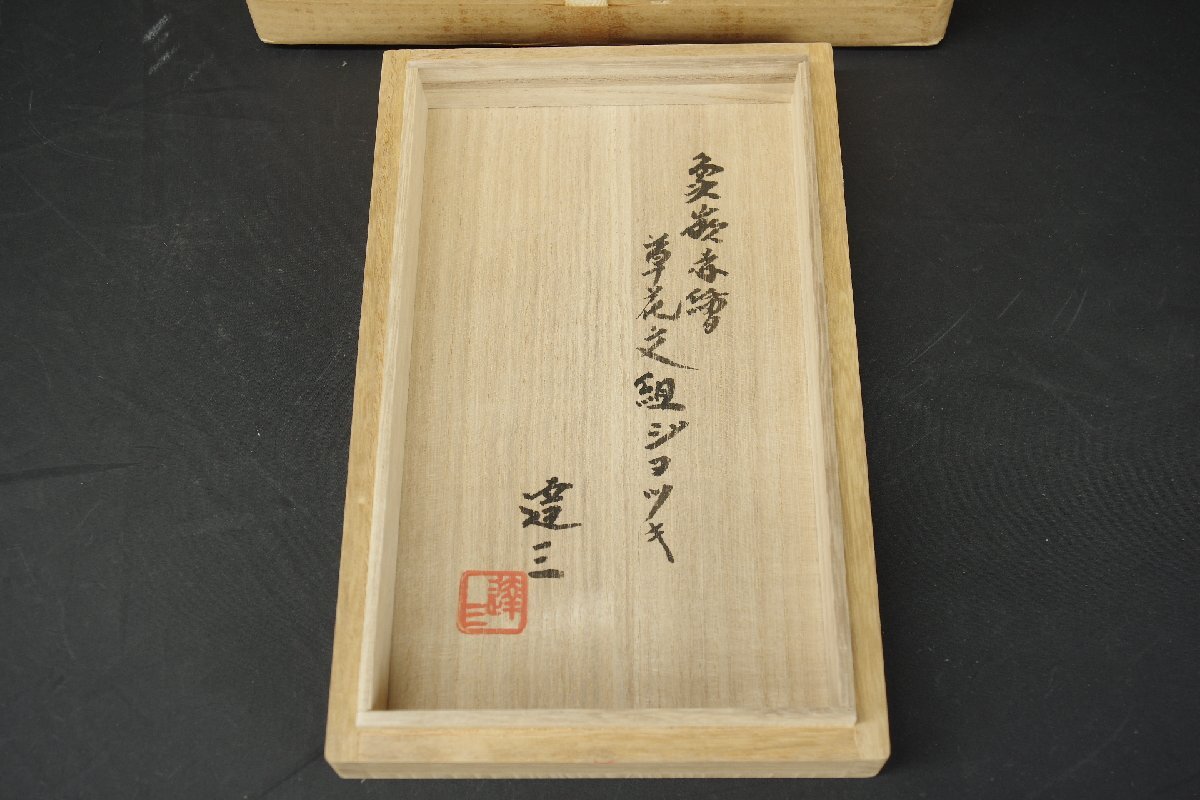 象嵌赤繪
草花文組ジョツキ
達三
達三